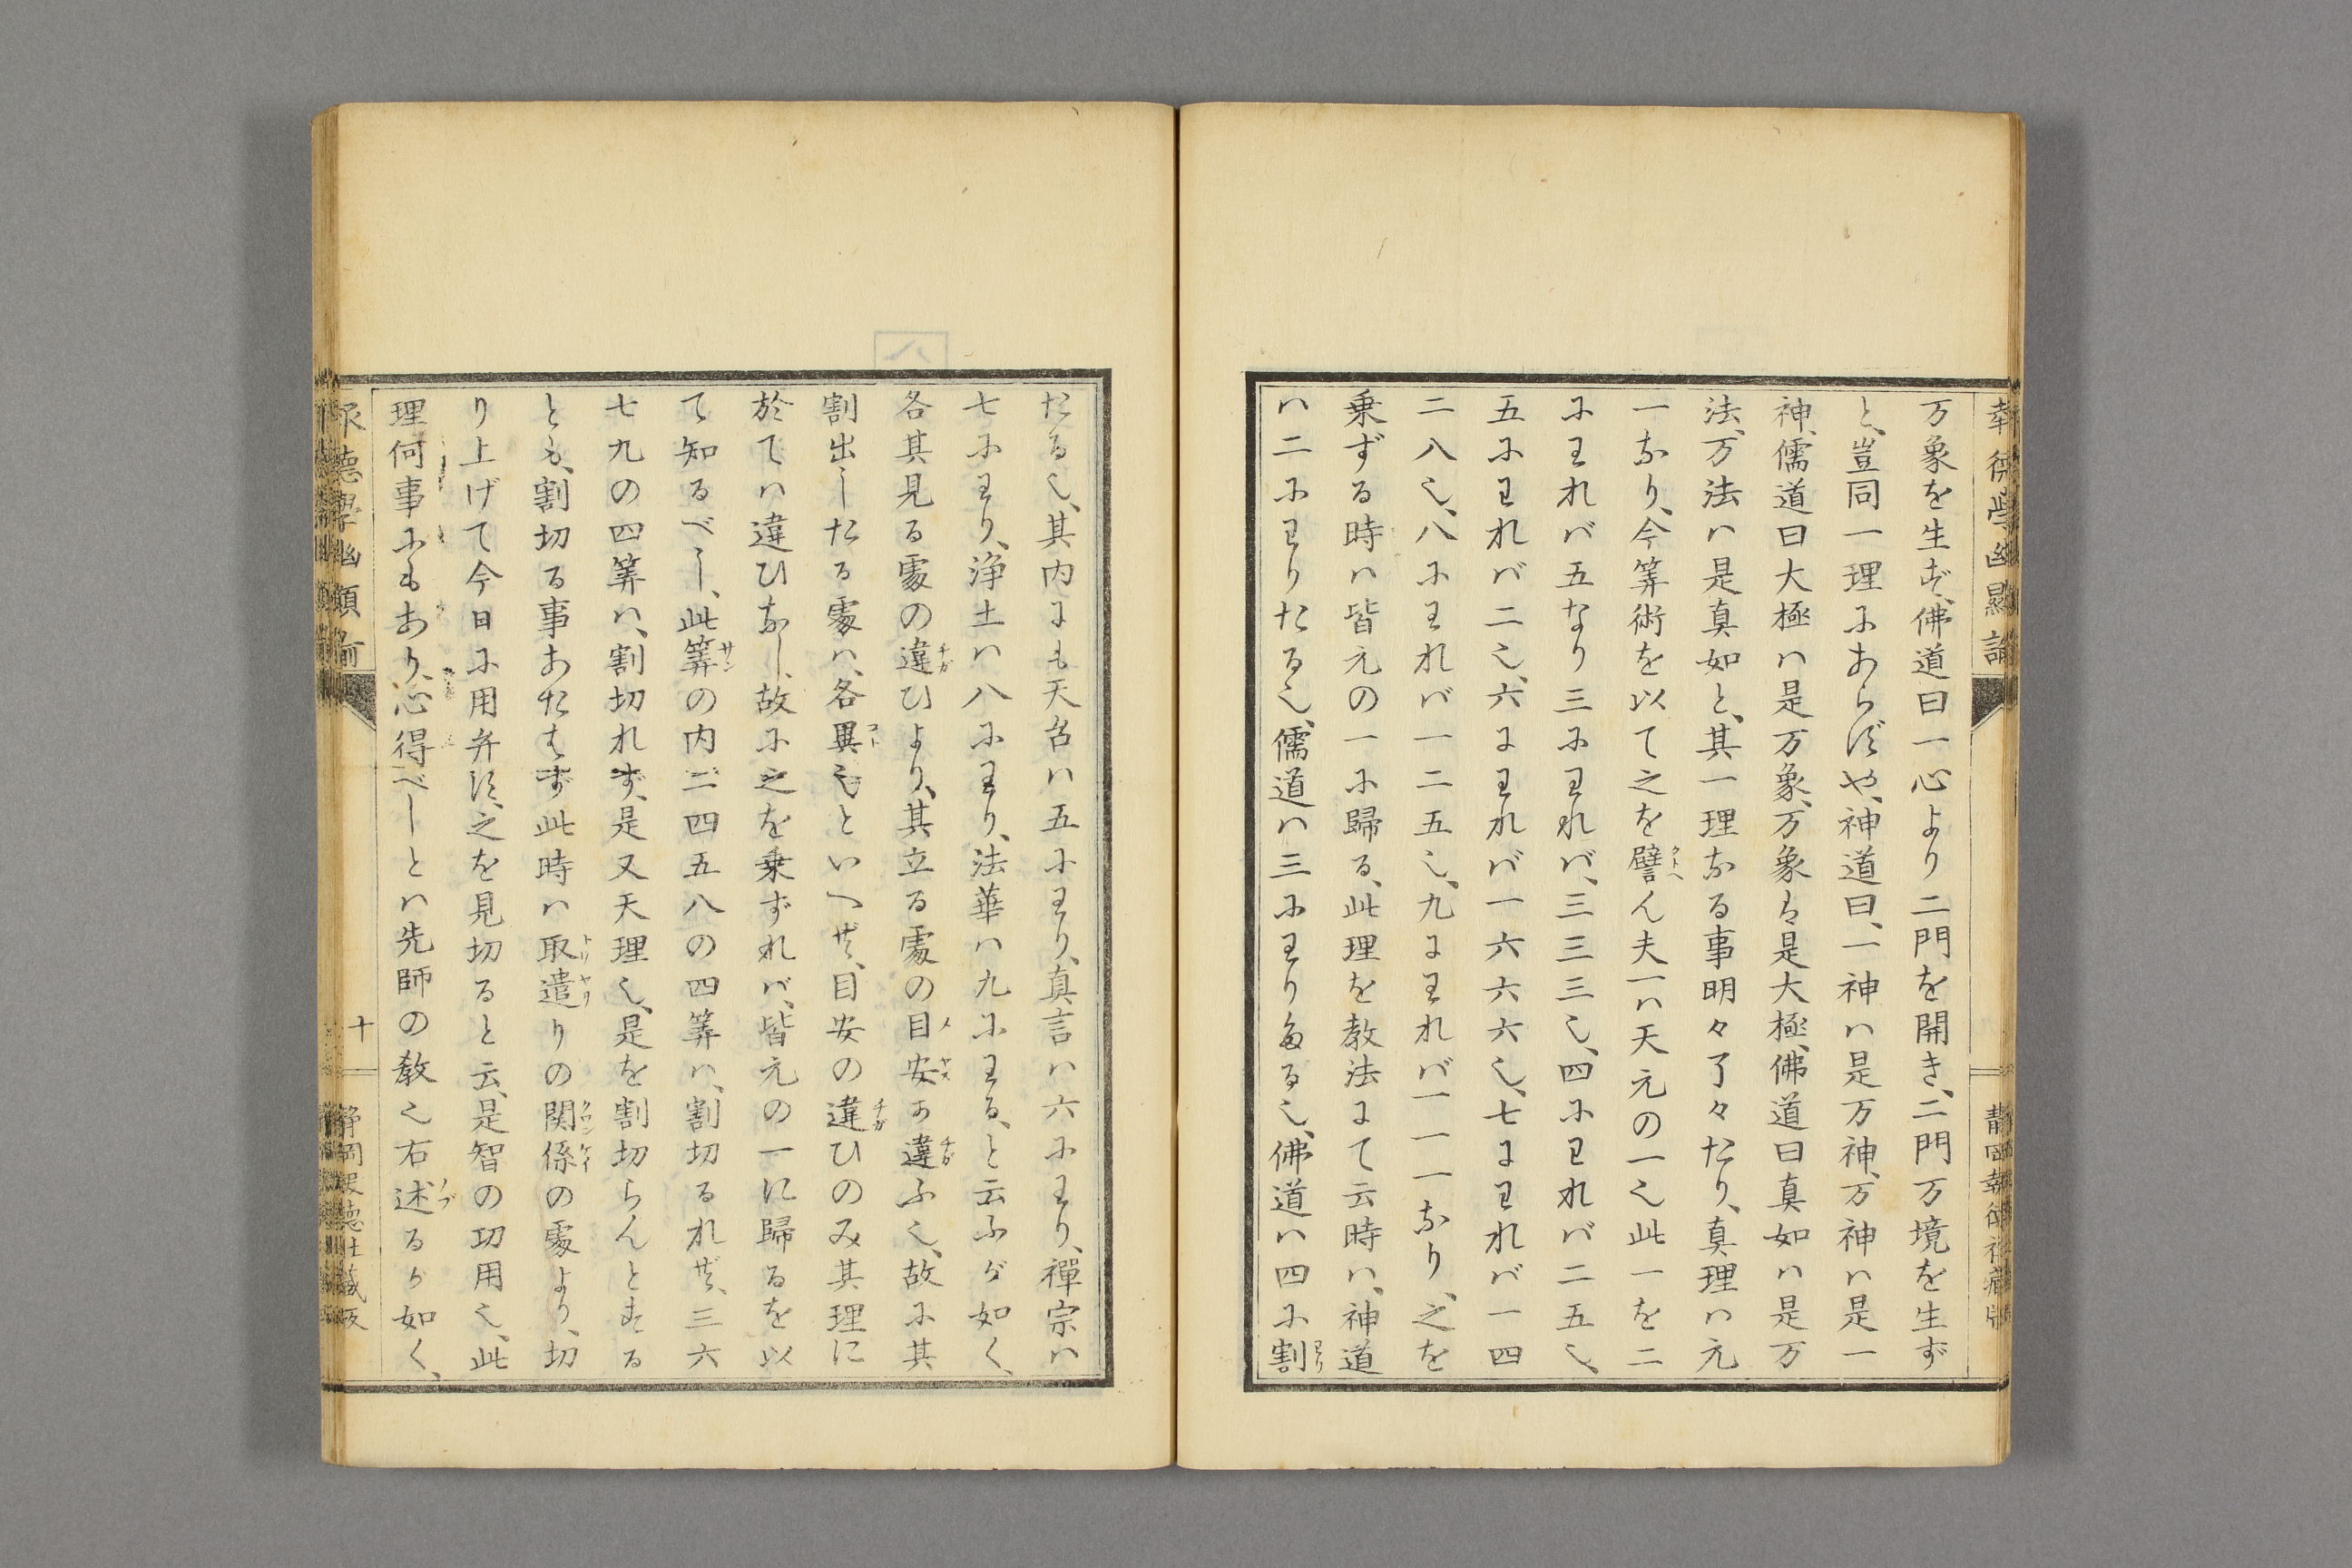 万象を生ず、佛道曰一心より二門を開き、二門万境を生ず
と、豈同一理にあらずや、神道曰、一神ハ是万神、万神ハ是一
神、儒道曰大極ハ是万象、万象は是大極、佛道曰真如ハ是万
法、万法ハ是真如と、其一理なる事明々了々たり、真理ハ元
一なり、今筭術を以て之を譬ん夫一ハ天元の一也此一を二
にわれバ五なり三にわれバ、三三三也、四にわれバ二五也、
五にわれバ二也、六にわれバ一六六六也、七にわれバ一四
二八也、八にわれバ一二五也、九にわれバ一一一なり、之を
乗ずる時ハ皆元の一に歸る、此理を教法にて云時ハ、神道
ハ二にわりたる也、儒道ハ三にわりたる也、佛道ハ四に割
たる也、其内にも天台ハ五にわり、真言ハ六にわり、禪宗ハ
七にわり、浄土ハ八にわり、法華ハ九にわる、と云ふが如く、
各其見る處の違ひより、其立る處の目安が違ふ也、故に其
割出したる處ハ、各異也といへども、目安の違ひのみ其理に
於てハ違ひなし、故に之を乗ずれバ、皆元の一に歸るを以
て知るべし、此筭の内二四五八の四筭ハ、割切るれども、三六
七九の四筭ハ、割切れず、是又天理也、是を割切らんとする
とも、割切る事あたはず此時ハ取遣りの関係の處より、切
り上げて今日に用弁ず、之を見切ると云、是智の功用也、此
理何事にもあり、心得べしとハ先師の教也右述るが如く、
報徳學幽顯論
十
静岡報徳社蔵版